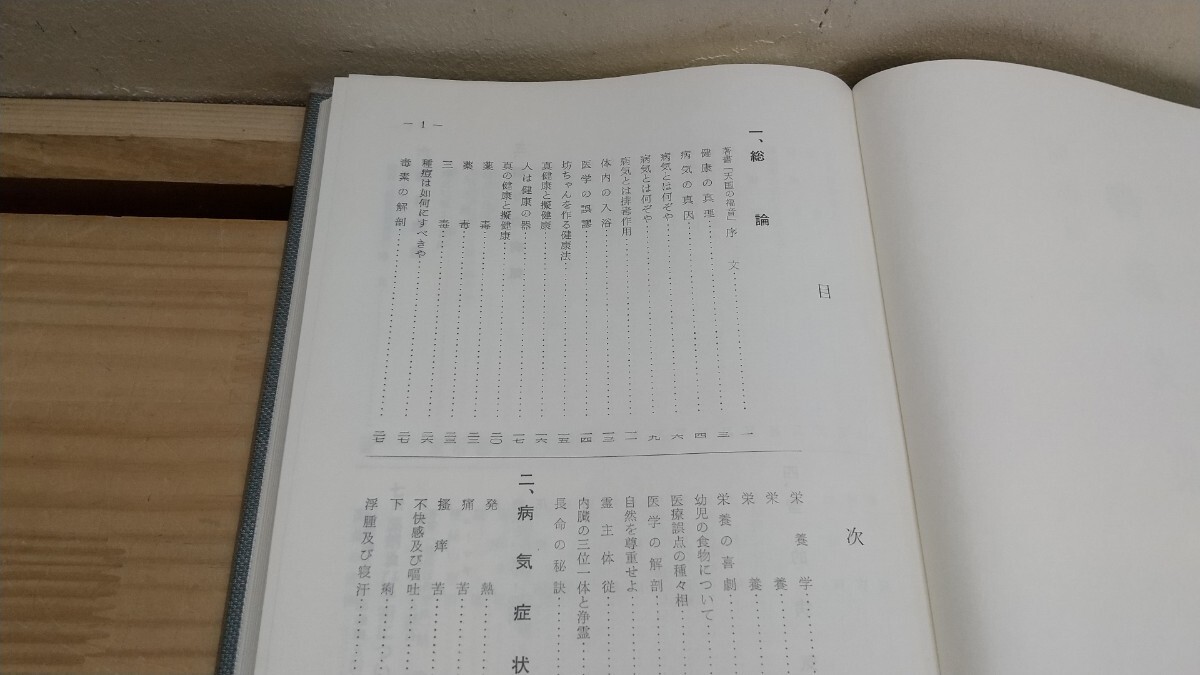 目次
一、総論
著書「天国の福音」序文………一
健康の真理………三
病気の真因………四
病気とは何ぞや………六
病気とは何ぞや………九
病気とは排毒作用………一一
体内の入浴………一三
医学の誤謬………一四
坊ちゃんを作る健康法………一五
真健康と擬健康………一六
人は健康の器………一七
真の健康と擬健康………二〇
薬毒………二三
薬毒………二三
三毒………二六
種痘は如何にすべきや………二七
毒素の解剖………二七
栄養学
栄養
栄養
栄養の喜劇
幼児の食物について
医療誤点の種々相
医学の解剖
自然を尊重せよ
霊主体従
内臓の三位一体と浄霊
長命の秘訣
二、病気症状
発熱
痛苦
搔痒苦
不快感及び嘔吐
下痢
浮腫及び寝汗
— 1 —